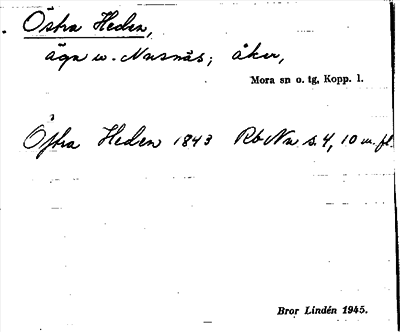 Östra Heden,
äga w. Nusnäs; åker,
Mora sn o. tg, Kopp. l.
Öfra Heden 1843 Rb Nn s. 4, 10 m. fl.
Bror Lindén 1945.